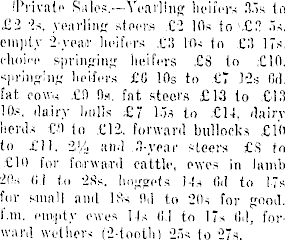 Private Sales.—Yearling heifers 35s to
£2 2s, yearling steers £2 10s to £3 5s,
empty 2-year heifers £3 10s to £3 17s,
choice springing heifers £8 to £10,
springing heifers £6 10s to £7 12s 6d,
fat cows £9 9s, fat steers £13 to £13
10s, dairy bulls £7 15s to £14, dairy
herds £9 to £12, forward bullocks £10
to £11, 2½ and 3-year steers £8 to
£10 for forward cattle, ewes in lamb
20s 6d to 28s, hoggets 14s 6d to 17s
for small and 18s 9d to 20s for good,
f.m. empty ewes 14s 6d to 17s 6d, for-
ward wethers (2-tooth) 25s to 27s.